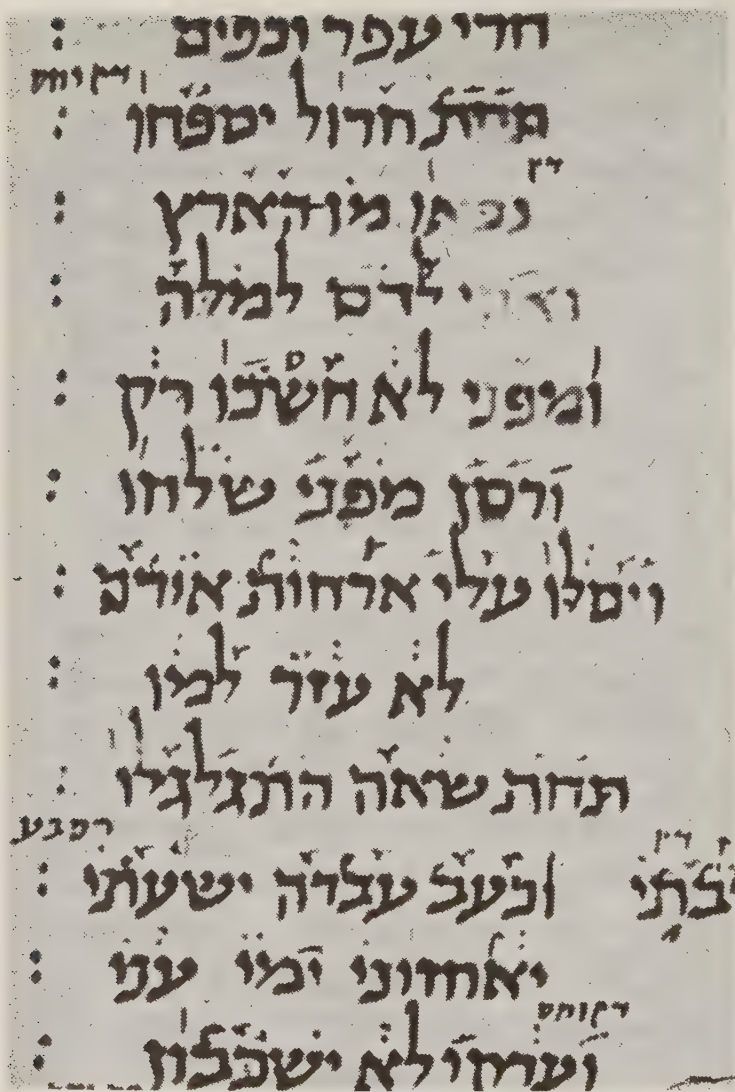 חרי עפר וכפים :
תחת חרול יספחו :
נכאו מן הארץ :
להם למלה :
ומיפני לא חשכו רק :
ורסן מפני שלחו :
ויסלו עלי ארחות אידם :
לא עזר למו :
תחת שאה התגלגלו :
בתי וכעב עברה ישעתי :
יאחזוני ימי עני :
וערקי לא ישכבון :